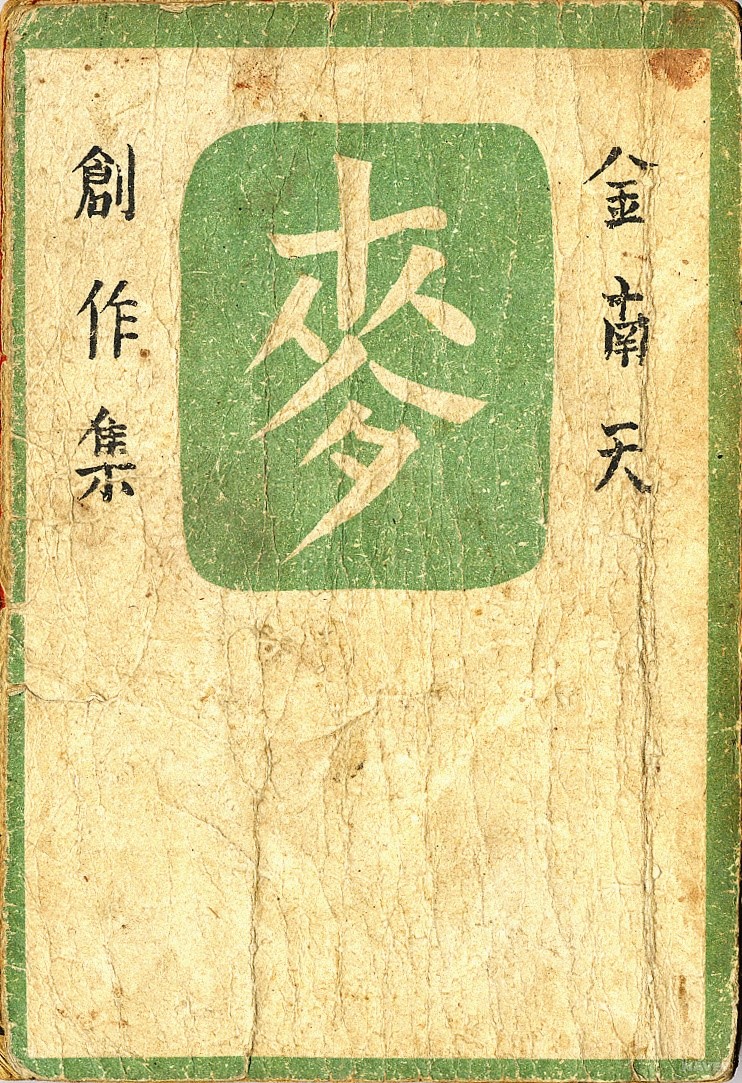 金南天
麥
創作集